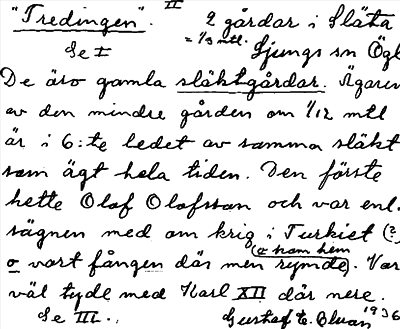 "Tredingen". II 2 gårdar i Släta
= 1/3 mtl.
Se I Ljungs sn Ögl
De äro gamla släktgårdar. Ägaren
av den mindre gården om 1/12 mtl
är i 6:te ledet av samma släkt
som ägt hela tiden. Den förste
hette Olof Olofsson och var enl.
sägnen med om krig i Turkiet (?)
(o kom hem
o vart fången där men rymde). Var
väl tyde med Karl XII där nere.
Se III. Gustaf E. 1936